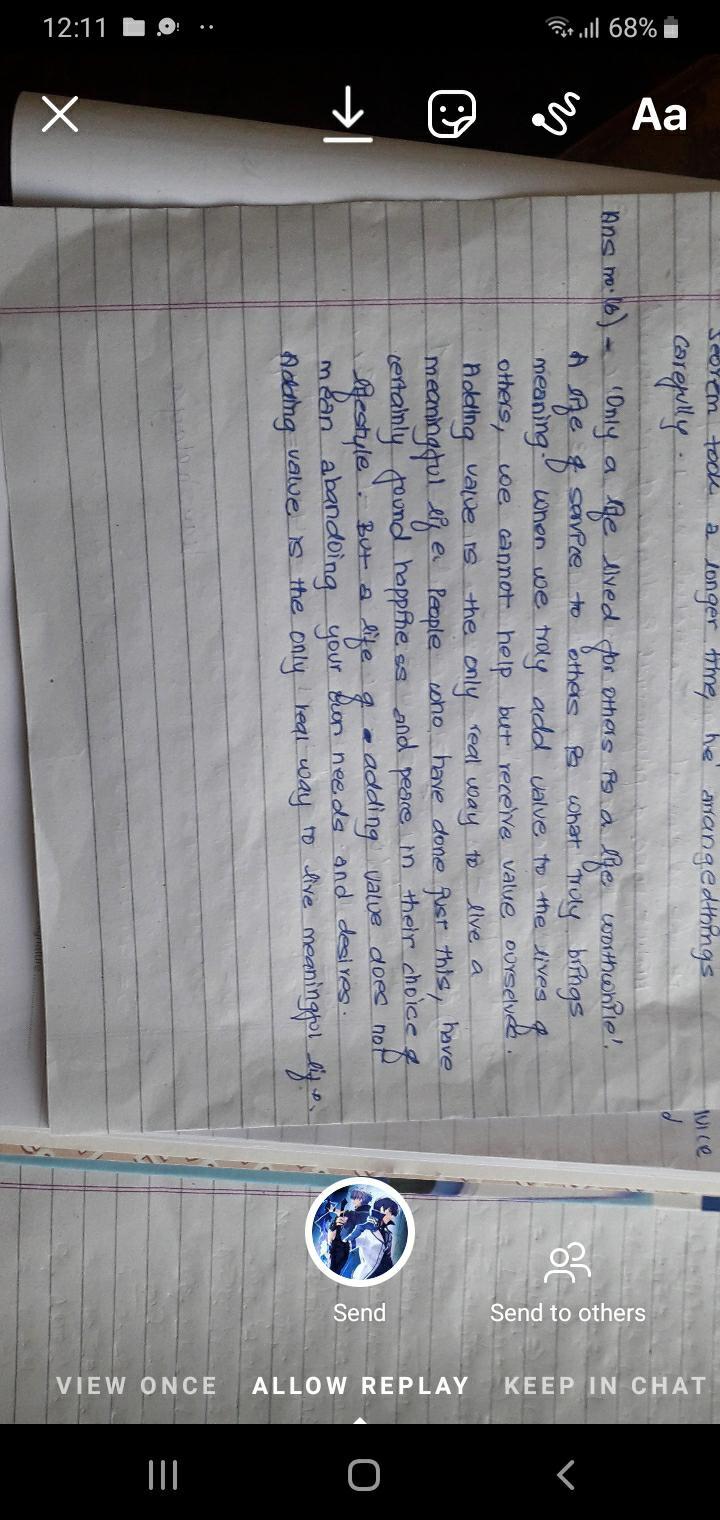 12:11
68%
Aa
seorem took a longer time, he arrangedthings
carefully.
Ans no.(6) - 'Only a life lived for others is a life worthwhile'.
A life of service to others is what truly brings
meaning. When we truly add value to the lives of
others, we cannot help but receive value ourselves.
Adding value is the only real way to live a
meaningful life. People who have done just this, have
certainly found happiness and peace in their choice of
lifestyle. But a life of adding value does not
mean abandoing your own needs and desires.
Adding value is the only real way to live meaningful life.
Send
Send to others
VIEW ONCE
ALLOW REPLAY
KEEP IN CHAT